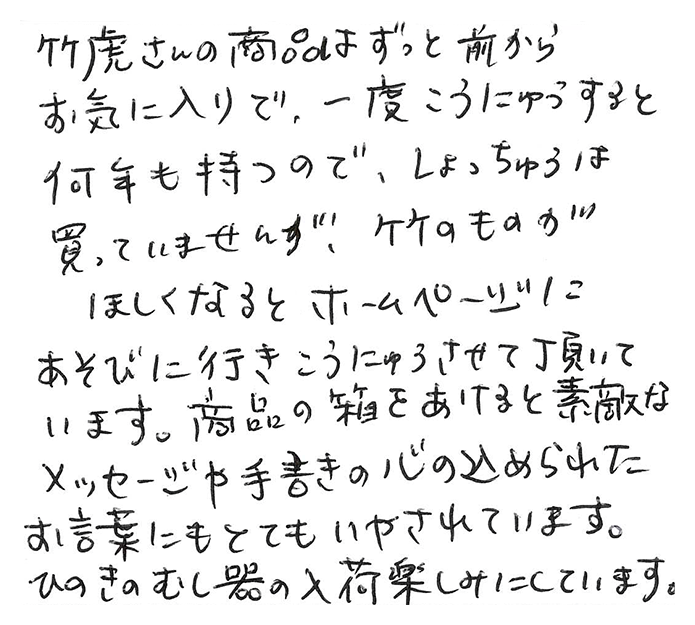 竹虎さんの商品はずっと前から
お気に入りで、一度こうにゅうすると
何年も持つので、しょっちゅうは
買っていませんが、竹のものが
ほしくなるとホームページに
あそびに行きこうにゅうさせて頂いて
います。商品の箱をあけると素敵な
メッセージや手書きの心の込められた
お言葉にもとてもいやされています。
ひのきのむし器の入荷楽しみにしています。